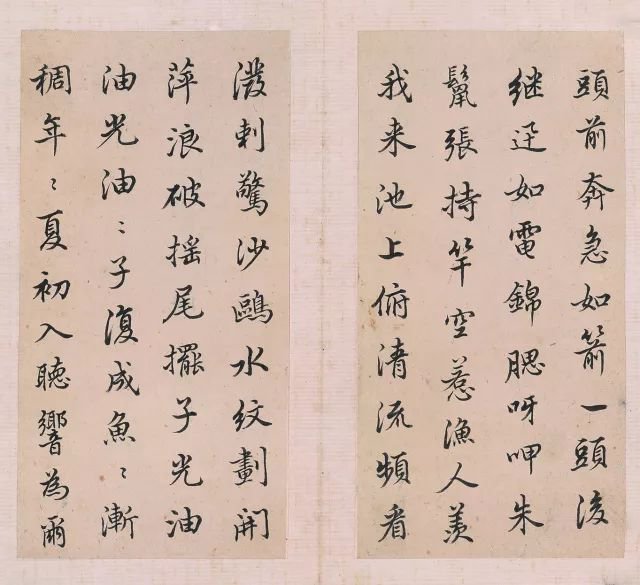 頭前奔急如箭一頭後
继迅如電錦腮呀呷朱
鬣張持竿空惹漁人羨
我来池上俯清流頻看
潑剌驚沙鷗水紋劃開
萍浪破摇尾擺子光油
油光油〻子復成魚〻漸
稠年〻夏初入聴響為爾